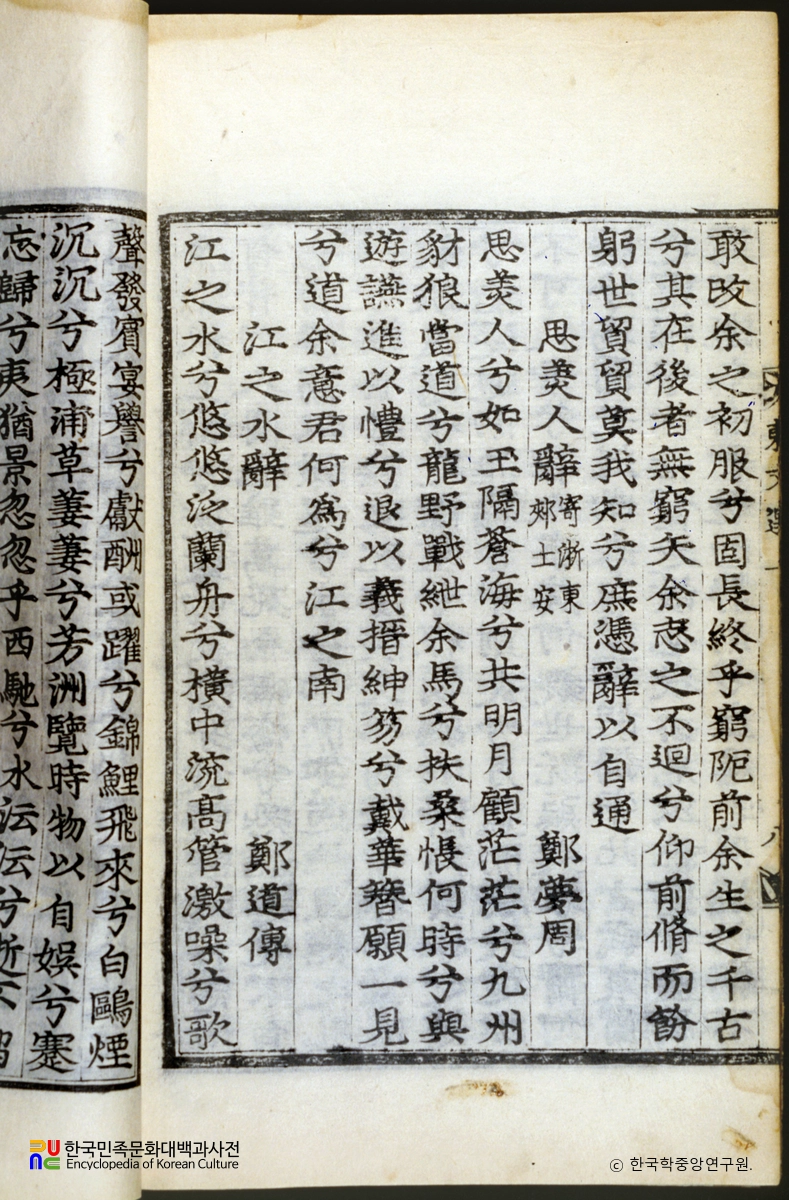 敢改余之初服兮固長終乎窮阨前余生之千古
兮其在後者無窮矢余志之不迴兮仰前脩而飭
躬世貿貿莫我知兮庶憑辭以自通
思美人辭 寄浙東郟士安 鄭夢周
思美人兮如玉隔蒼海兮共明月顧茫茫兮九州
豺狼當道兮龍野戰紲余馬兮扶桑悵何時兮與
遊讌進以禮兮退以義搢紳笏兮戴華簪願一見
兮道余意君何爲兮江之南
江之水辭 鄭道傳
江之水兮悠悠泛蘭舟兮橫中流高管激噪兮歌
聲發賓宴譽兮獻酬或躍兮錦鯉飛來兮白鷗煙
沉沉兮極浦草萋萋兮芳洲覽時物以自娛兮蹇
忘歸兮夷猶景忽忽乎西馳兮水沄沄兮逝不
東文選
八
한국민족문화대백과사전
Encyclopedia of Korean Culture
© 한국학중앙연구원.